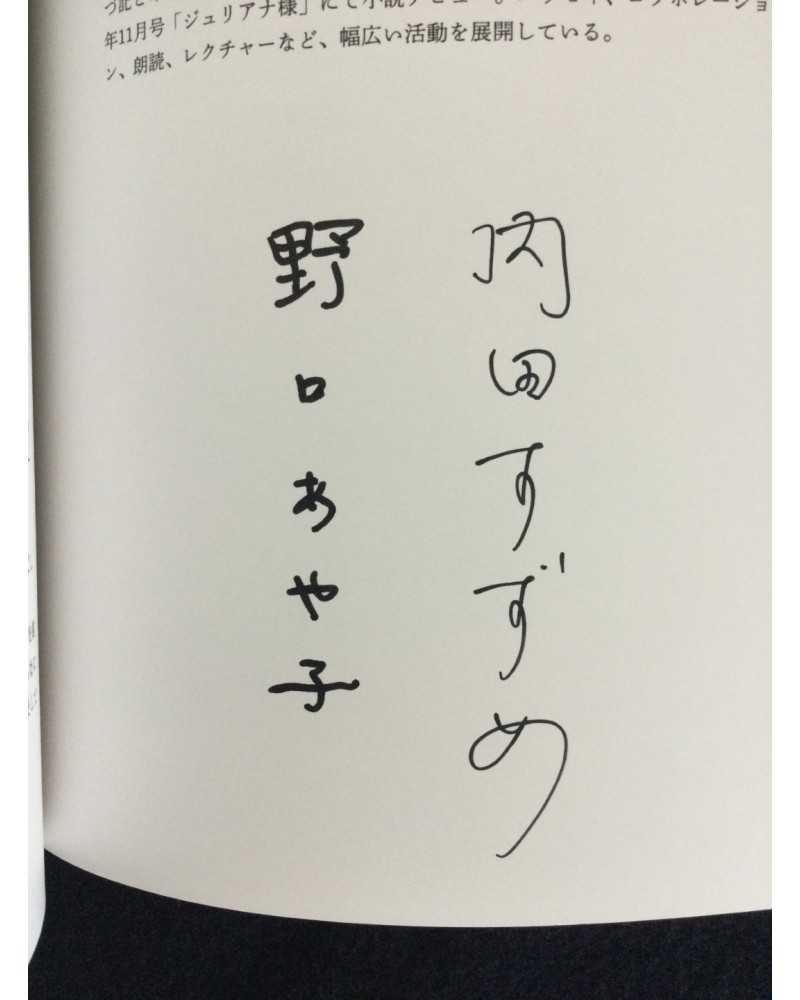 年11月号「ジュリアナ様」にて小説デビュー。エッセイ、コラボレーショ
ン、朗読、レクチャーなど、幅広い活動を展開している。
内田すずめ
野口あや子